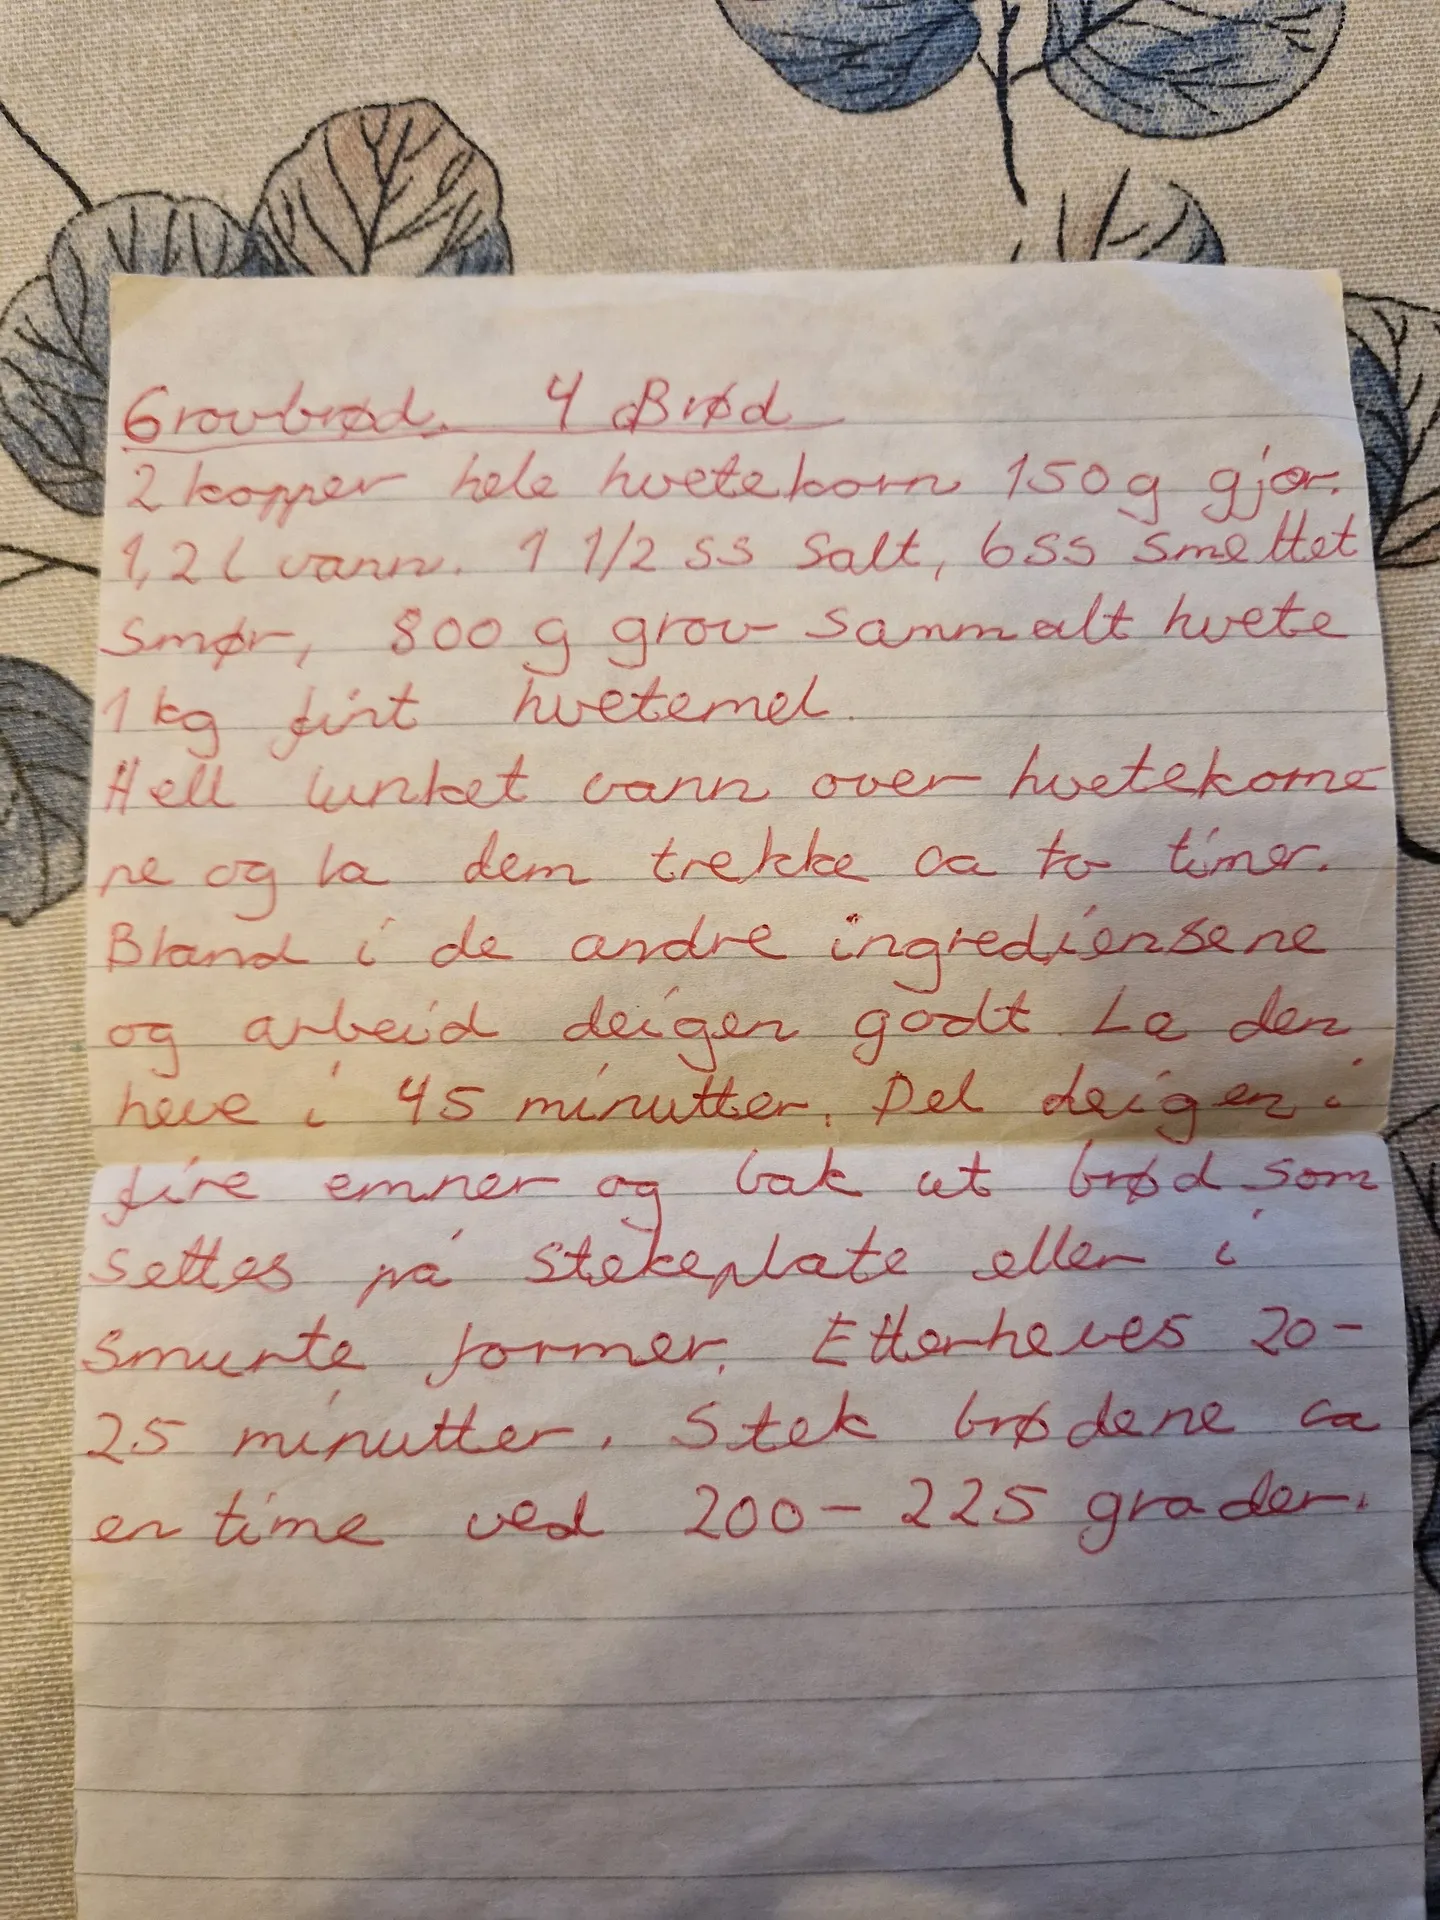 Grovbrød. 4 Brød
2 kopper hele hvetekorn 150 g gjær.
1,2 l vann. 1 1/2 ss salt, 6 ss smeltet
smør, 800 g grov sammalt hvete
1 kg fint hvetemel.
Hell lunket vann over hvetekorne
ne og la dem trekke ca to timer.
Bland i de andre ingrediensene
og arbeid deigen godt. La den
heve i 45 minutter. Del deigen i
fire emner og bak ut brød som
settes på stekeplate eller i
smurte former. Etterheves 20-
25 minutter. Stek brødene ca
en time ved 200-225 grader.